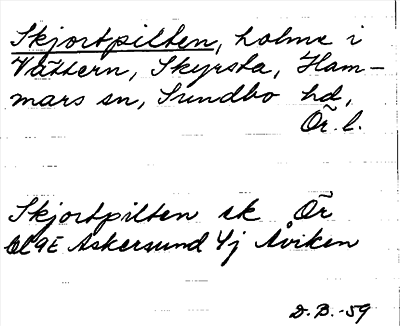 Skjortpilten, holme i
Vättern, Skyrsta, Ham-
mars sn, Sundbo hd,
Ör. l.
Skjortpilten sk Ör
9E Askersund 4j Åviken
D.B.-59